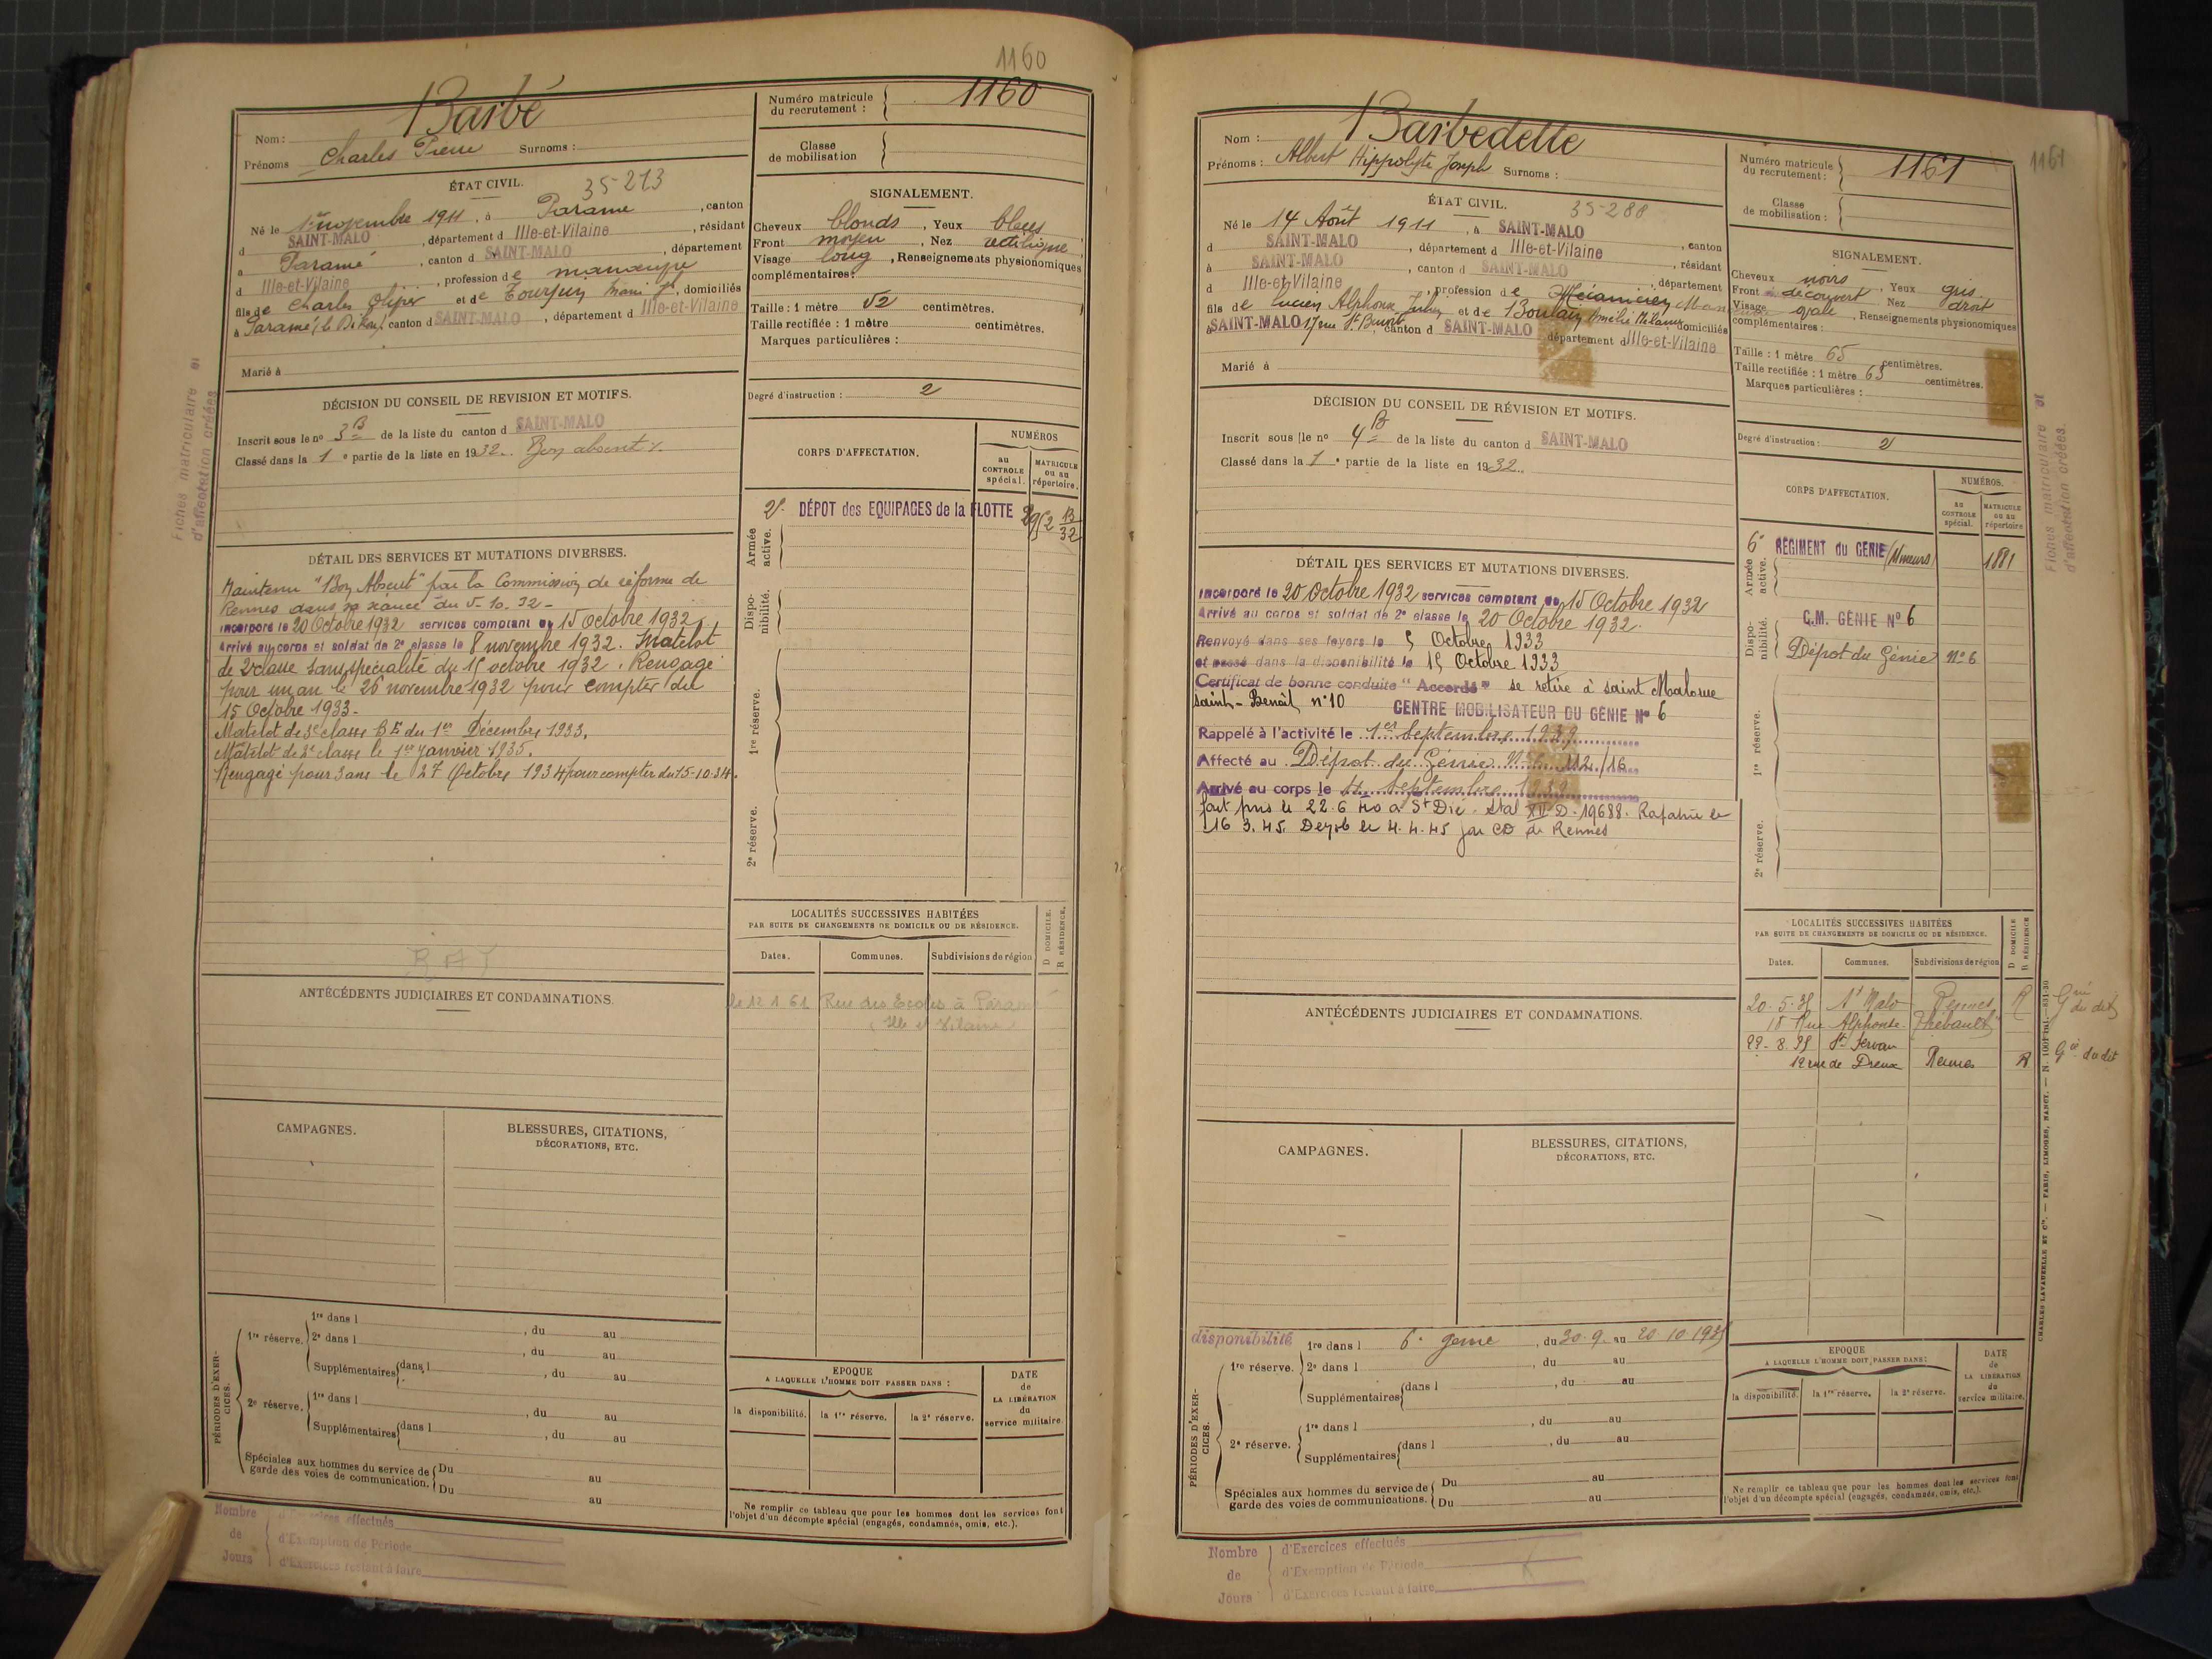 1160
Nom : Barbé
Prénoms Charles Pierre Surnoms :
Numéro matricule du recrutement : 1160
Classe de mobilisation
ÉTAT CIVIL.
35-213
Né le 1er novembre 1911, à Paramé, canton
d SAINT-MALO, département d Ille-et-Vilaine, résidant
à Paramé, canton d SAINT-MALO, département
d Ille-et-Vilaine, profession de manœuvre
fils de Charles et de domiciliés
à Paramé canton d SAINT-MALO, département d Ille-et-Vilaine
Marié à
SIGNALEMENT.
Cheveux blonds, Yeux bleus
Front moyen, Nez rectiligne
Visage long, Renseignements physionomiques
complémentaires :
Taille : 1 mètre 52 centimètres.
Taille rectifiée : 1 mètre centimètres.
Marques particulières :
Degré d'instruction : 2
DÉCISION DU CONSEIL DE REVISION ET MOTIFS.
Inscrit sous le no 3 B de la liste du canton d SAINT-MALO
Classé dans la 1e partie de la liste en 1932. Bon absent
CORPS D'AFFECTATION.
NUMÉROS
au CONTROLE spécial.
MATRICULE ou au répertoire.
Armée active.
2e DÉPOT des EQUIPAGES de la FLOTTE
Disponibilité.
1re réserve.
2e réserve.
DÉTAIL DES SERVICES ET MUTATIONS DIVERSES.
Maintenu "Bon Absent" par la Commission de réforme de
Rennes dans sa séance du 5-10.32-
Incorporé le 20 Octobre 1932 services comptant du 15 Octobre 1932
Arrivé au corps et soldat de 2e classe le 8 novembre 1932. Matelot
de 2e classe sans spécialité du 15 octobre 1932. Rengagé
pour un an le 26 novembre 1932 pour compter du
15 Octobre 1933-
Matelot de 3e classe BE du 1er Décembre 1933.
Matelot de 2e classe le 1er janvier 1935.
Rengagé pour 3 ans le 27 Octobre 1934 pour compter du 15-10-34.
ANTÉCÉDENTS JUDICIAIRES ET CONDAMNATIONS.
LOCALITÉS SUCCESSIVES HABITÉES
PAR SUITE DE CHANGEMENTS DE DOMICILE OU DE RÉSIDENCE.
D DOMICILE.
R RÉSIDENCE.
Dates. Communes. Subdivisions de région
le 12 1 61 Rue des Ecoles à Paramé
(Ille et Vilaine)
CAMPAGNES.
BLESSURES, CITATIONS,
DÉCORATIONS, ETC.
PÉRIODES D'EXERCICES.
1re réserve.
1re dans l , du au
2e dans l , du au
Supplémentaires dans l , du au
2e réserve.
1re dans l , du au
Supplémentaires dans l , du au
Spéciales aux hommes du service de
garde des voies de communication.
Du au
Du au
EPOQUE
A LAQUELLE L'HOMME DOIT PASSER DANS :
la disponibilité. la 1re réserve. la 2e réserve.
DATE de LA LIBÉRATION du service militaire.
Ne remplir ce tableau que pour les hommes dont les services font
l'objet d'un décompte spécial (engagés, condamnés, omis, etc.).
Nombre de Jours
d'Exercices effectués
d'Exemption de Période
d'Exercices restant à faire
Fiches matriculaire et
d'affectation créées
1161
Nom : Barbedette
Prénoms : Albert Hippolyte Joseph Surnoms :
Numéro matricule du recrutement : 1161
Classe de mobilisation :
ÉTAT CIVIL.
35-288
Né le 14 Août 1911, à SAINT-MALO
d SAINT-MALO, département d Ille-et-Vilaine, canton
à SAINT-MALO, canton d SAINT-MALO, résidant
d Ille-et-Vilaine, profession de Mécanicien, département
fils de Lucien Alphonse et de Amélie domiciliés
à SAINT-MALO 17 rue St Benoit canton d SAINT-MALO département d Ille-et-Vilaine
Marié à
SIGNALEMENT.
Cheveux noirs, Yeux gris
Front découvert Nez droit
Visage ovale, Renseignements physionomiques
complémentaires :
Taille : 1 mètre 65 centimètres.
Taille rectifiée : 1 mètre 63 centimètres.
Marques particulières :
Degré d'instruction : 2
DÉCISION DU CONSEIL DE RÉVISION ET MOTIFS.
Inscrit sous le no 4 B de la liste du canton d SAINT-MALO
Classé dans la 1e partie de la liste en 1932.
CORPS D'AFFECTATION.
NUMÉROS.
au CONTROLE spécial.
MATRICULE ou au répertoire
Armée active.
6e REGIMENT du GENIE (Mineurs) 1881
Disponibilité.
C.M. GÉNIE No 6
Dépot du Génie No 6
1re réserve.
2e réserve.
DÉTAIL DES SERVICES ET MUTATIONS DIVERSES.
Incorporé le 20 Octobre 1932 services comptant du 15 Octobre 1932
Arrivé au corps et soldat de 2e classe le 20 Octobre 1932.
Renvoyé dans ses foyers le 5 Octobre 1933
et passé dans la disponibilité le 15 Octobre 1933
Certificat de bonne conduite "Accordé" se retire à saint Malo rue
saint-Benoît n°10
CENTRE MOBILISATEUR DU GÉNIE No 6
Rappelé à l'activité le 1er Septembre 1939
Affecté au Dépot du Génie No 6 112/16
Arrivé au corps le Septembre 1939
fait pris le 22.6.40 a St Dié. Stal XII D. 19688. Rapatrié le
16 3.45. Demob le 4.4.45 par CD de Rennes
ANTÉCÉDENTS JUDICIAIRES ET CONDAMNATIONS.
LOCALITÉS SUCCESSIVES HABITÉES
PAR SUITE DE CHANGEMENTS DE DOMICILE OU DE RÉSIDENCE.
D DOMICILE
R RÉSIDENCE
Dates. Communes. Subdivisions de région
20.5.35 St Malo Rennes R Gie du dit
18 Rue Alphonse Thébault
29-8.35 St Servan
12 rue de Dreux Rennes R Gie du dit
CAMPAGNES.
BLESSURES, CITATIONS,
DÉCORATIONS, ETC.
PÉRIODES D'EXERCICES.
disponibilité
1re dans l 6e génie, du 30.9. au 20 10 1935
1re réserve.
2e dans l , du au
Supplémentaires dans l , du au
2e réserve.
1re dans l , du au
Supplémentaires dans l , du au
Spéciales aux hommes du service de
garde des voies de communications.
Du au
Du au
EPOQUE
A LAQUELLE L'HOMME DOIT PASSER DANS :
la disponibilité. la 1re réserve. la 2e réserve.
DATE de LA LIBÉRATION du service militaire.
Ne remplir ce tableau que pour les hommes dont les services font
l'objet d'un décompte spécial (engagés, condamnés, omis, etc.).
Nombre de Jours
d'Exercices effectués
d'Exemption de Période
d'Exercices restant à faire
Fiches matriculaire et
d'affectation créées.
CHARLES-LAVAUZELLE ET Cie. — PARIS, LIMOGES, NANCY.